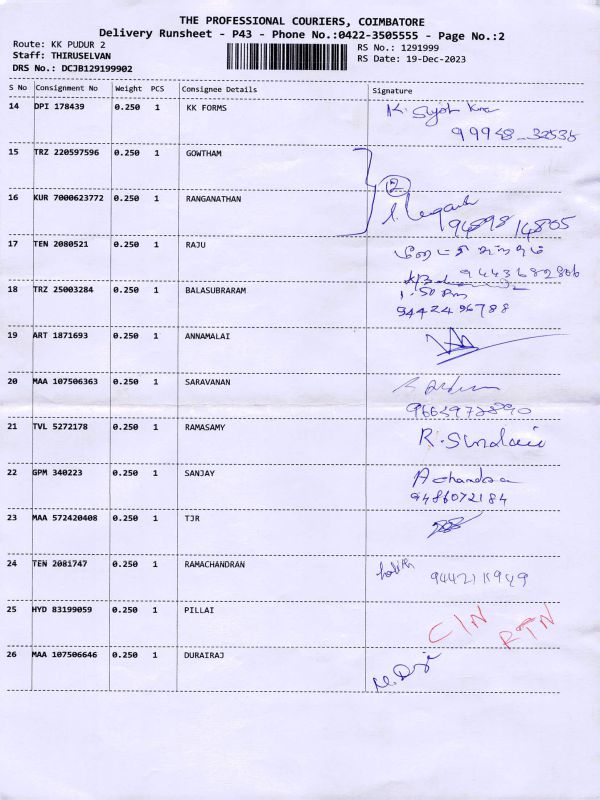 THE PROFESSIONAL COURIERS, COIMBATORE
Delivery Runsheet - P43 - Phone No.:0422-3505555 - Page No.:2
Route: KK PUDUR 2
Staff: THIRUSELVAN
DRS No.: DCJB129199902
RS No.: 1291999
RS Date: 19-Dec-2023
S No Consignment No Weight PCS Consignee Details Signature
14 DPI 178439 0.250 1 KK FORMS
15 TRZ 220597596 0.250 1 GOWTHAM
2
16 KUR 7000623772 0.250 1 RANGANATHAN
94898 14805
17 TEN 2080521 0.250 1 RAJU
9443682806
18 TRZ 25003284 0.250 1 BALASUBRARAM
1.50 Pm
9442496788
19 ART 1871693 0.250 1 ANNAMALAI
20 MAA 107506363 0.250 1 SARAVANAN
21 TVL 5272178 0.250 1 RAMASAMY
22 GPM 340223 0.250 1 SANJAY
A chandra
9486072184
23 MAA 572420408 0.250 1 TJR
24 TEN 2081747 0.250 1 RAMACHANDRAN
25 HYD 83199059 0.250 1 PILLAI
C/N RTN
26 MAA 107506646 0.250 1 DURAIRAJ